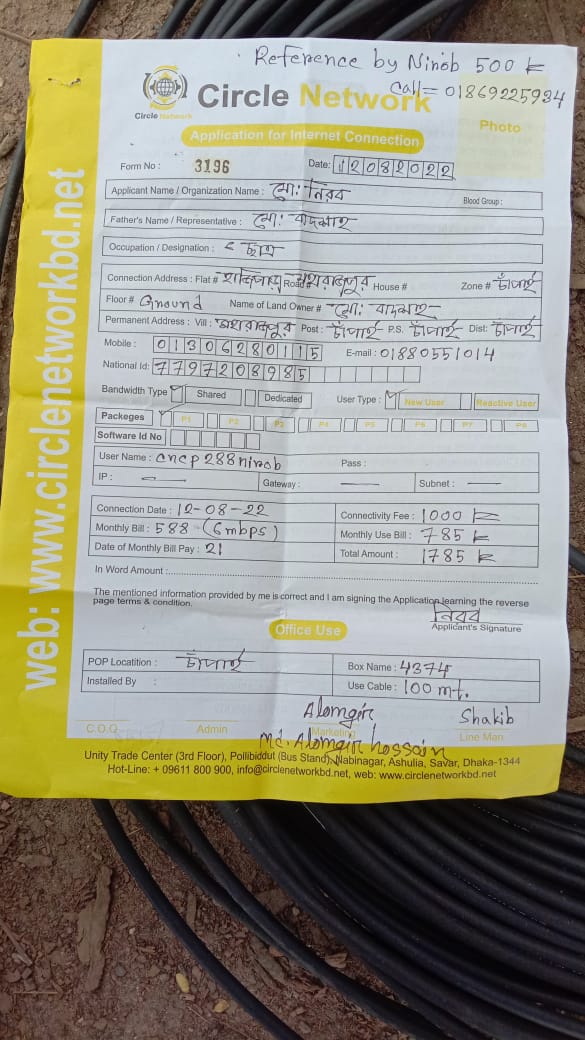 Reference by Ninob 500 k
Call = 01869225934
Circle Network
Circle Network
Photo
Application for Internet Connection
Form No : 3196 Date: 12082022
Applicant Name / Organization Name : মো: নিরব Blood Group :
Father's Name / Representative : মো: বাদশাহ
Occupation / Designation : ছাত্র
Connection Address : Flat # Road # House # Zone # চাঁপাই
Floor # Ground Name of Land Owner # মো: বাদশাহ
Permanent Address : Vill : মহারাজপুর Post : চাঁপাই P.S. চাঁপাই Dist: চাঁপাই
Mobile : 01306280115 E-mail : 01880551014
National Id: 7797208985
Bandwidth Type Shared Dedicated User Type : New User Reactive User
Packeges P1 P2 P3 P4 P5 P6 P7 P8
Software Id No
User Name : cncp288nirob Pass :
IP : — Gateway : — Subnet : —
Connection Date : 12-08-22 Connectivity Fee : 1000 k
Monthly Bill : 588 - (6mbps) Monthly Use Bill : 785 k
Date of Monthly Bill Pay : 21 Total Amount : 1785 k
In Word Amount :
The mentioned information provided by me is correct and I am signing the Application learning the reverse
page terms & condition.
নিরব
Applicant's Signature
Office Use
POP Locatition : চাঁপাই Box Name : 4374
Installed By : Use Cable : 100 mt.
Alomgir Shakib
C.O.O Admin Marketing Line Man
Md. Alomgir hossain
Unity Trade Center (3rd Floor), Pollibiddut (Bus Stand), Nabinagar, Ashulia, Savar, Dhaka-1344
Hot-Line: + 09611 800 900, info@circlenetworkbd.net, web: www.circlenetworkbd.net
web: www.circlenetworkbd.net